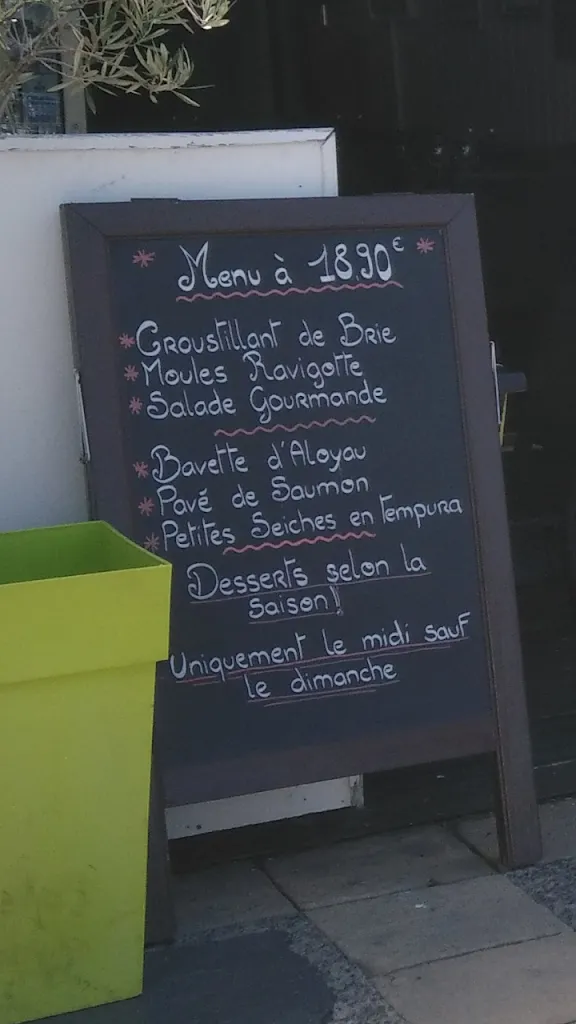 * Menu à 18.90€ *
* Croustillant de Brie
* Moules Ravigotte
* Salade Gourmande
* Bavette d'Aloyau
* Pavé de Saumon
* Petites Seiches en Tempura
Desserts selon la
saison!!
Uniquement le midi sauf
le dimanche